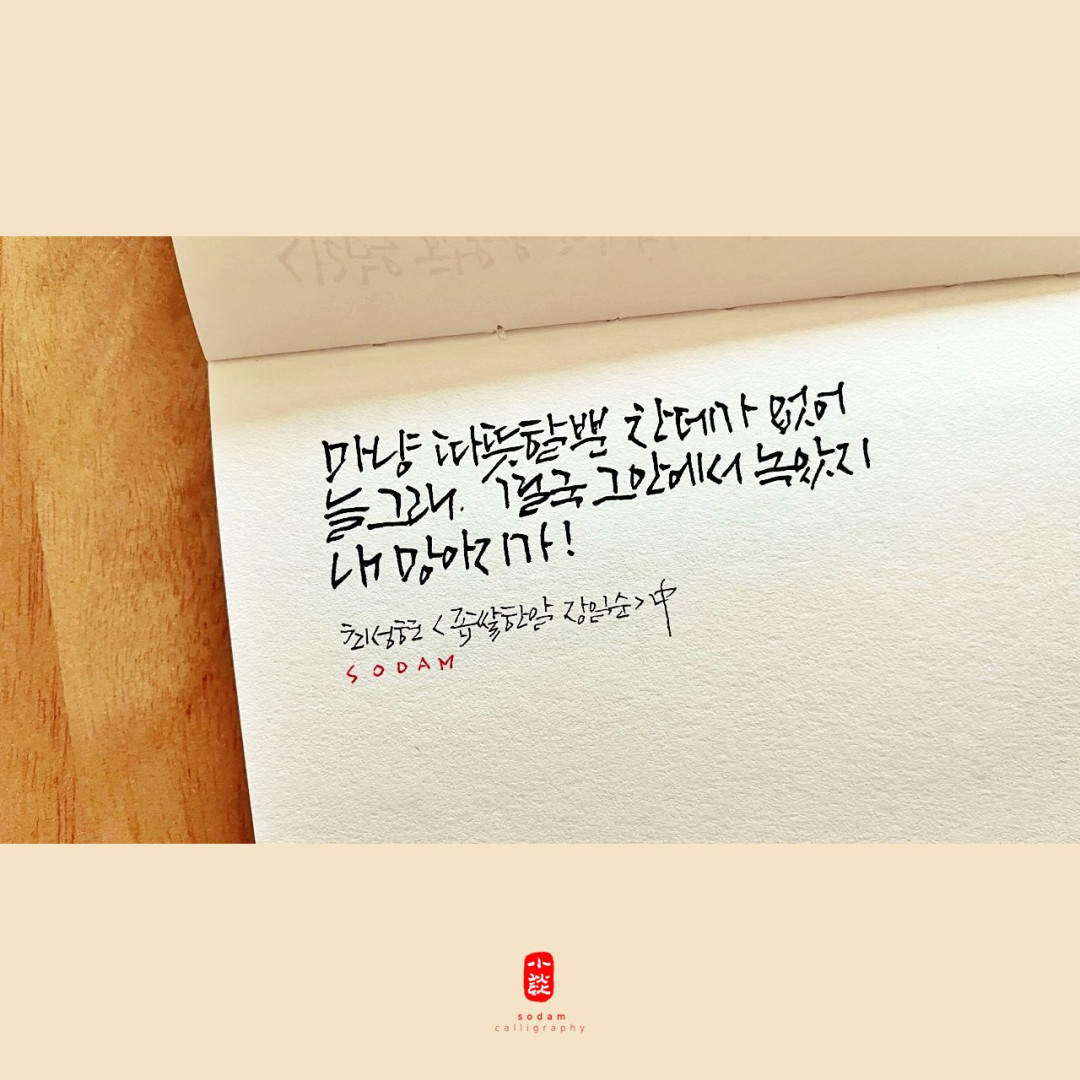 마냥 따뜻할뿐 찬데가 없어
늘 그래. 결국 그안에서 녹았지
내 망아지가!
최성현 <좁쌀한알 장일순> 中
SODAM
小談
sodam
calligraphy